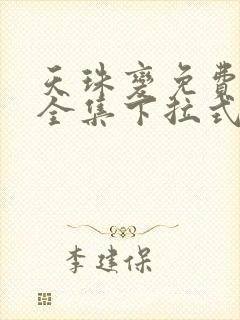 天珠變免費
全集下拉式
李建保